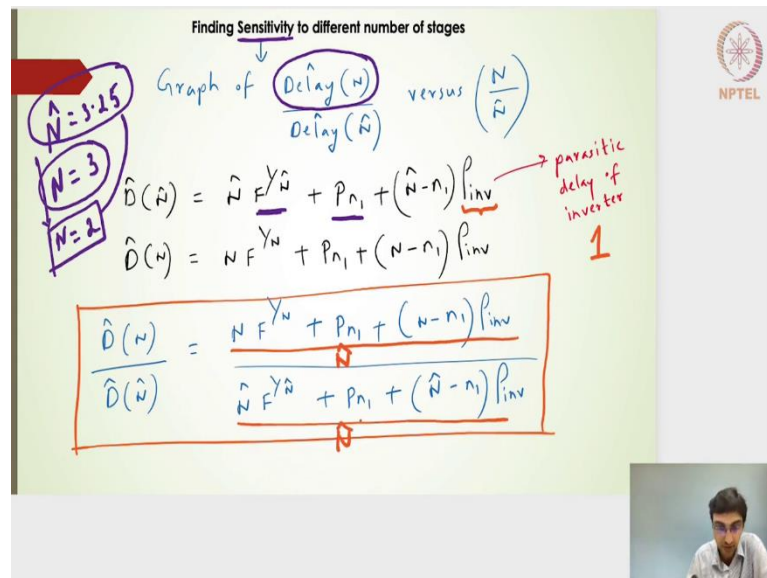 Finding Sensitivity to different number of stages
NPTEL
Graph of Delây(N) / Delây(N̂) versus (N/N̂)
N̂ = 3.25
N = 3
N = 2
D̂(N̂) = N̂ F^(1/N̂) + Pn₁ + (N̂-n₁) Pinv
→ parasitic delay of inverter
1
D̂(N) = N F^(1/N) + Pn₁ + (N-n₁) Pinv
D̂(N) / D̂(N̂) = N F^(1/N) + Pn₁ + (N-n₁) Pinv / N̂ F^(1/N̂) + Pn₁ + (N̂-n₁) Pinv
N̂
N̂